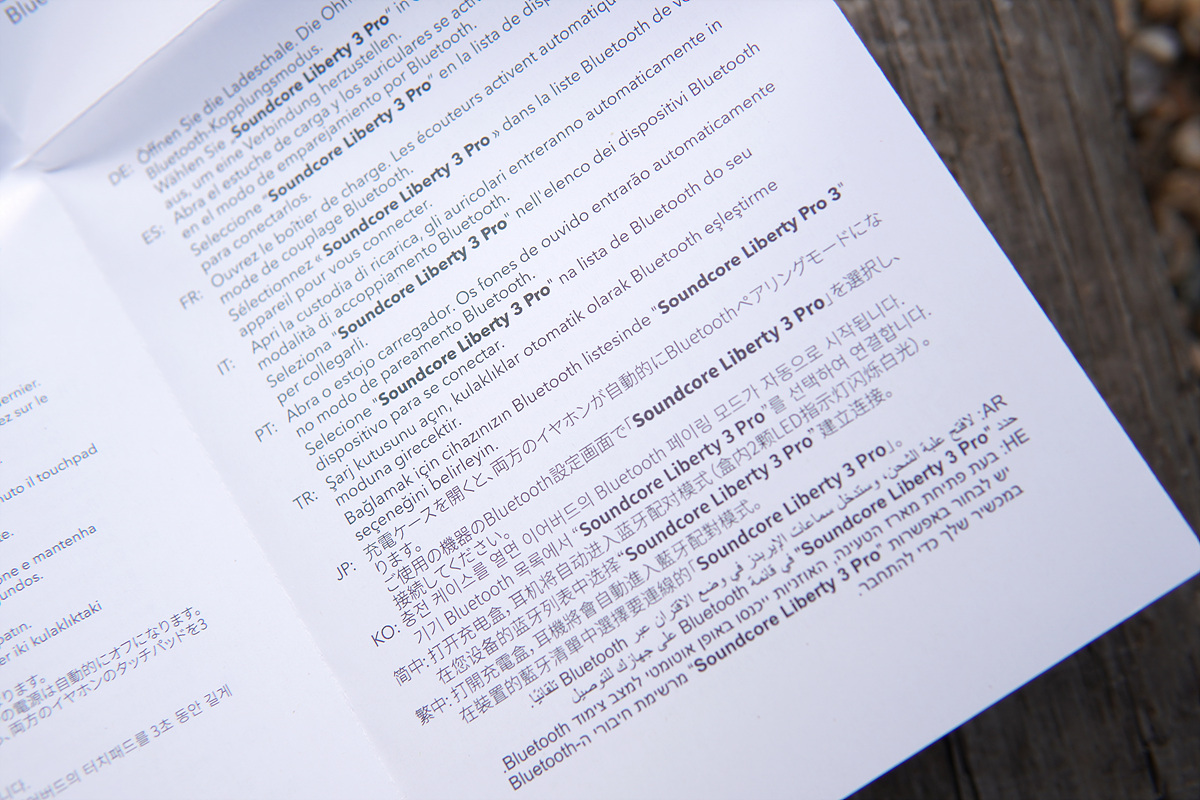 ernier.
ez sur le
nuto il touchpad
te.
one e mantenha
gundos.
patin.
er iki kulaklıktaki
ります。
の電源は自動的にオフになります。
、両方のイヤホンのタッチパッドを3
이버드의 터치패드를 3초 동안 길게
니다.
DE: Öffnen Sie die Ladeschale. Die Ohr
Bluetooth-Kopplungsmodus.
Wählen Sie „Soundcore Liberty 3 Pro“ in
aus, um eine Verbindung herzustellen.
ES: Abra el estuche de carga y los auriculares se acti
en el modo de emparejamiento por Bluetooth.
Seleccione "Soundcore Liberty 3 Pro" en la lista de disp
para conectarlos.
FR: Ouvrez le boîtier de charge. Les écouteurs activent automatiqu
mode de couplage Bluetooth.
Sélectionnez « Soundcore Liberty 3 Pro » dans la liste Bluetooth de vo
appareil pour vous connecter.
IT: Apri la custodia di ricarica, gli auricolari entreranno automaticamente in
modalità di accoppiamento Bluetooth.
Seleziona "Soundcore Liberty 3 Pro" nell'elenco dei dispositivi Bluetooth
per collegarli.
PT: Abra o estojo carregador. Os fones de ouvido entrarão automaticamente
no modo de pareamento Bluetooth.
Selecione "Soundcore Liberty 3 Pro" na lista de Bluetooth do seu
dispositivo para se conectar.
TR: Şarj kutusunu açın, kulaklıklar otomatik olarak Bluetooth eşleştirme
moduna girecektir.
Bağlamak için cihazınızın Bluetooth listesinde "Soundcore Liberty Pro 3"
seçeneğini belirleyin.
JP: 充電ケースを開くと、両方のイヤホンが自動的にBluetoothペアリングモードにな
ります。
ご使用の機器のBluetooth設定画面で「Soundcore Liberty 3 Pro」を選択し、
接続してください。
KO: 충전 케이스를 열면 이어버드의 Bluetooth 페어링 모드가 자동으로 시작됩니다.
기기 Bluetooth 목록에서 "Soundcore Liberty 3 Pro"를 선택하여 연결합니다.
简中: 打开充电盒, 耳机将自动进入蓝牙配对模式 (盒内2颗LED指示灯闪烁白光)。
在您设备的蓝牙列表中选择"Soundcore Liberty 3 Pro" 建立连接。
繁中: 打開充電盒, 耳機將會自動進入藍牙配對模式。
在裝置的藍牙清單中選擇要連線的「Soundcore Liberty 3 Pro」。
AR: لافتح علبة الشحن، وستدخل سماعات الإيربدز في وضع الاقتران عبر Bluetooth تلقائيًا.
حدد "Soundcore Liberty 3 Pro" في قائمة Bluetooth على جهازك للتوصيل
HE: בעת פתיחת מארז הטעינה, האוזניות ייכנסו באופן אוטומטי למצב צימוד Bluetooth.
יש לבחור באפשרות "Soundcore Liberty 3 Pro" מרשימת חיבורי ה-Bluetooth
במכשיר שלך כדי להתחבר.